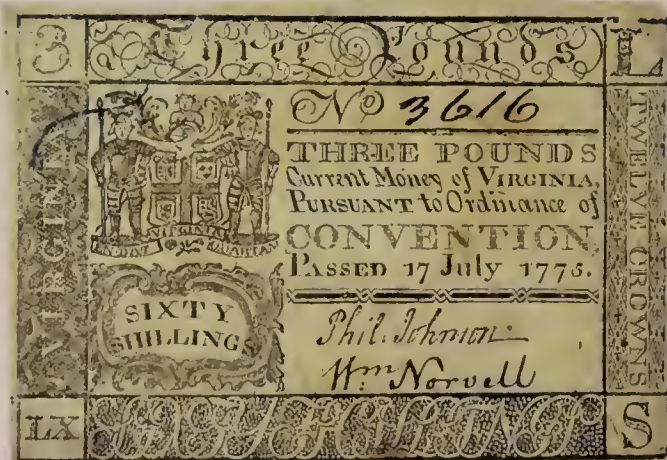 3 Three Pounds L
VIRGINIA
TWELVE CROWNS
No 3616
THREE POUNDS
Current Money of VIRGINIA,
PURSUANT to Ordinance of
CONVENTION,
PASSED 17 July 1775.
VIRGINIA
EN DAT QUARTAM
SIXTY
SHILLINGS
Phil. Johnson
Wm Norvell
LX
S